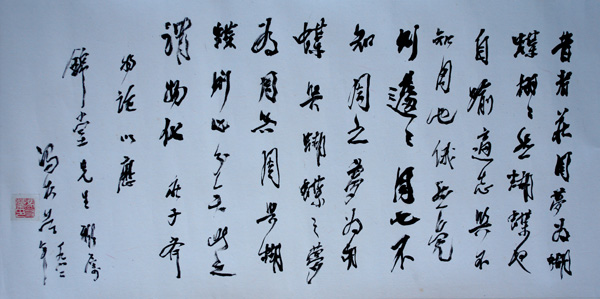 昔者莊周夢為蝴
蝶栩〻然蝴蝶也
自喻適志與不
知周也俄然覺
則蘧〻周也不
知周之夢為胡
蝶與蝴蝶之夢
為周與周與蝴
蝶則必分矣此之
謂物化 莊子齊
物論以應
錦堂先生雅屬
馮友
一九八二